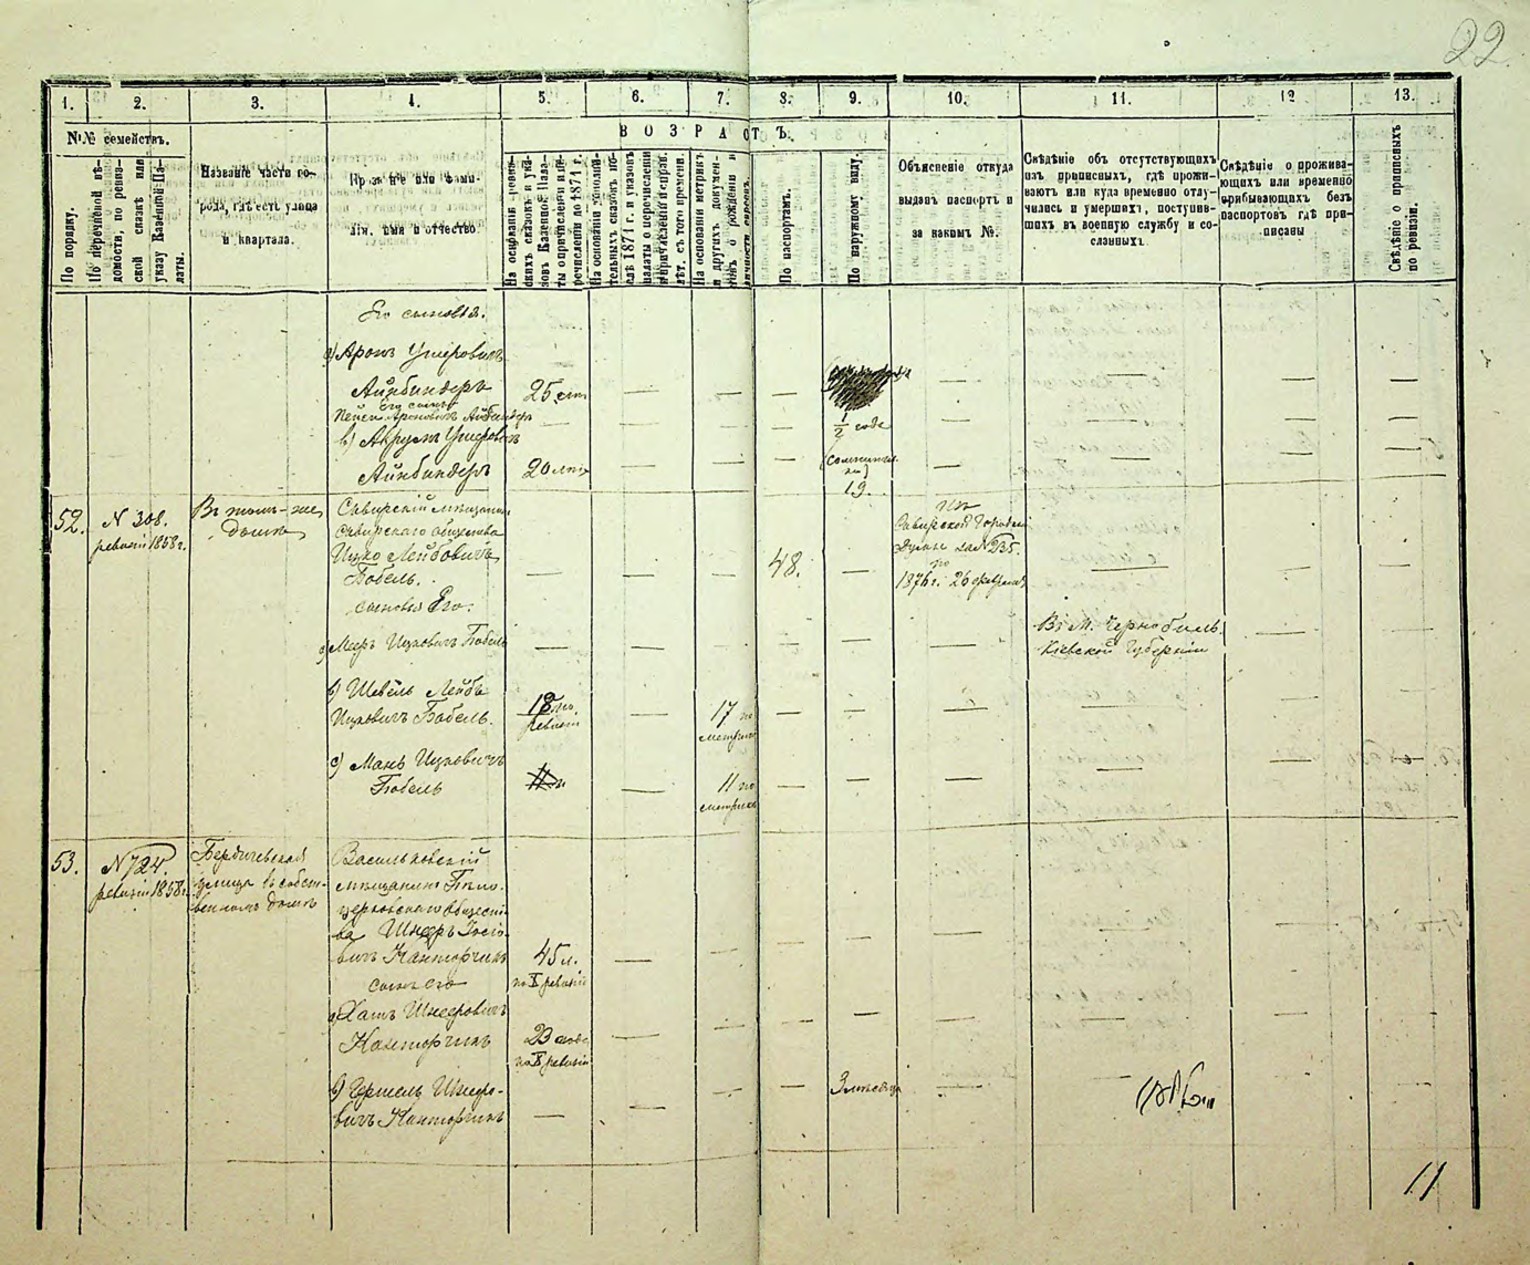 22
1.
2.
3.
4.
5.
6.
7.
8.
9.
10.
11.
12
13.
№№ семействъ.
По порядку.
По перечневой вѣ-
домости, по ревиз-
ской сказкѣ или
указу Казенной Па-
латы.
Названіе части го-
рода, гдѣ есть улица
и квартала.
Прозваніе или фами-
лія, имя и отчество
ВОЗРАСТЪ.
На основаніи ревиз-
скихъ сказокъ и ука-
зовъ Казенной Пала-
ты о припискѣ или пе-
речисленіи до 1871 г.
На основаніи дополни-
тельныхъ сказокъ по-
слѣ 1871 г. и указовъ
палаты о перечисленіи
и причисленіи и справ.
лѣт. съ того времени.
На основаніи метрик.
и другихъ докумен-
товъ о рожденіи и
личности евреевъ.
По паспортамъ.
По наружному виду.
Объясненіе откуда
выданъ паспортъ и
за какимъ №.
Свѣдѣніе объ отсутствующихъ
изъ приписныхъ, гдѣ прожи-
ваютъ или куда временно отлу-
чились и умершихъ, поступив-
шихъ въ военную службу и со-
сланныхъ
Свѣдѣніе о прожива-
ющихъ или временно
прибывающихъ безъ
паспортовъ гдѣ при-
писаны
Свѣдѣніе о приписныхъ
по ревизіи.
Его сыновья.
а) Аронъ Ушеровичъ
Айнбиндеръ
25 лѣт
Его сынъ
Ароновичъ Айнбиндеръ
1/2 года
b) Ушеровичъ
Айнбиндеръ
20 лѣтъ
19.
52.
N 308.
ревизіи 1858 г.
Въ томъ-же
домѣ
Сквирскій мѣщанинъ
Сквирскаго общества
Ицко Лейбовичъ
Бобель.
48.
изъ
Сквирской Городск.
Думы за N 235.
1876 г. 26 февраля
сыновья Его:
а) Меръ Ицковичъ Бобель
Въ М. Чернобиль
Кіевской Губерніи
b) Шевель Лейбъ
Ицковичъ Бобель.
18 по
ревизіи
17 по
метрикѣ
с) Мань Ицковичъ
Бобель
11 по
метрикѣ
53.
N 724.
ревизіи 1858 г.
Бердичевской
улица въ собст-
венномъ домѣ
Васильковскій
мѣщанинъ Бѣло-
церковскаго общест-
ва Шнееръ Іосіо-
вичъ Канторчикъ
45 л.
по X ревизіи
сынъ его
а) Хаимъ Шнееровичъ
Канторчикъ
23
по X ревизіи
b) Гершель Шнееро-
вичъ Канторчикъ
3 мѣсяца
11